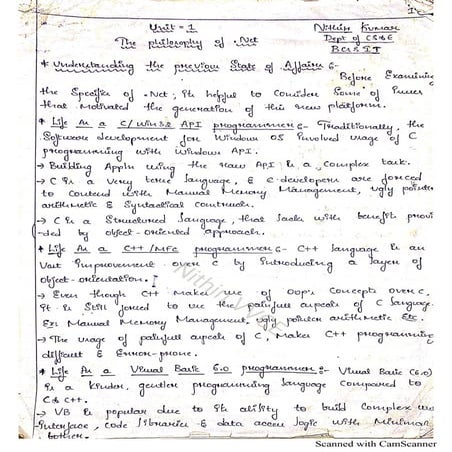 Unit - 1
Nithin Kumar
Dept of CS&E
The philosophy of .Net
* Understanding the previous State of Affairs :-
Before Examining
the Specifics of .Net; its helpful to Consider Some of Issues
that motivated the generation of this new platform.
* Life As a C/Win32 API programmer :- Traditionally, the
Software development for Windows OS involved usage of C
programming with Windows API.
→ Building Appln using the raw API is a complex task.
→ C is a very terse language, & C-developers are forced
to Contend with Manual Memory Management, ugly pointer
arithmetic & Syntactical constructs.
→ C is a Structured language, that lacks with benefit provi
-ded by object-oriented approach.
* Life As a C++/MFC programmer :- C++ language is an
Vast Improvement over C by introducing a layer of
object-orientation.
→ Even though C++ makes use of OOP's Concepts over C,
it is Still forced to use the painful aspects of C language
Ex: Manual Memory Management, ugly pointer arithmetic Etc.
→ The usage of painful aspects of C, Makes C++ programming
difficult & Error-prone.
* Life As a Visual Basic 6.0 programmer :- Visual Basic (6.0)
is a kinder, gentler programming language compared to
C & C++.
→ VB is popular due to its ability to build Complex
Interface, code libraries & data access logic with Minimum
bother.
Scanned with CamScanner